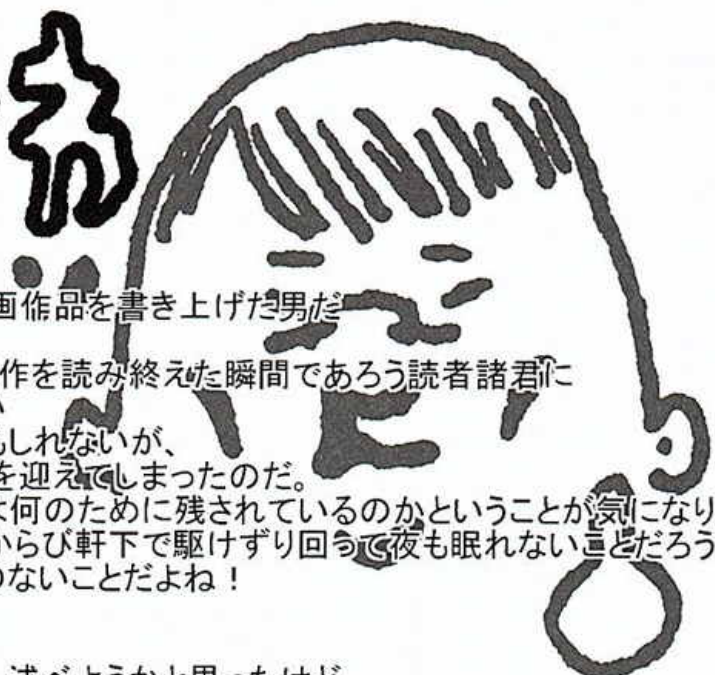 画作品を書き上げた男だ
作を読み終えた瞬間であろう読者諸君に
い
もしれないが、
を迎えてしまったのだ。
は何のために残されているのかということが気になり
からび軒下で駆けずり回って夜も眠れないことだろう
のないことだよね！
述べようかと思ったけど